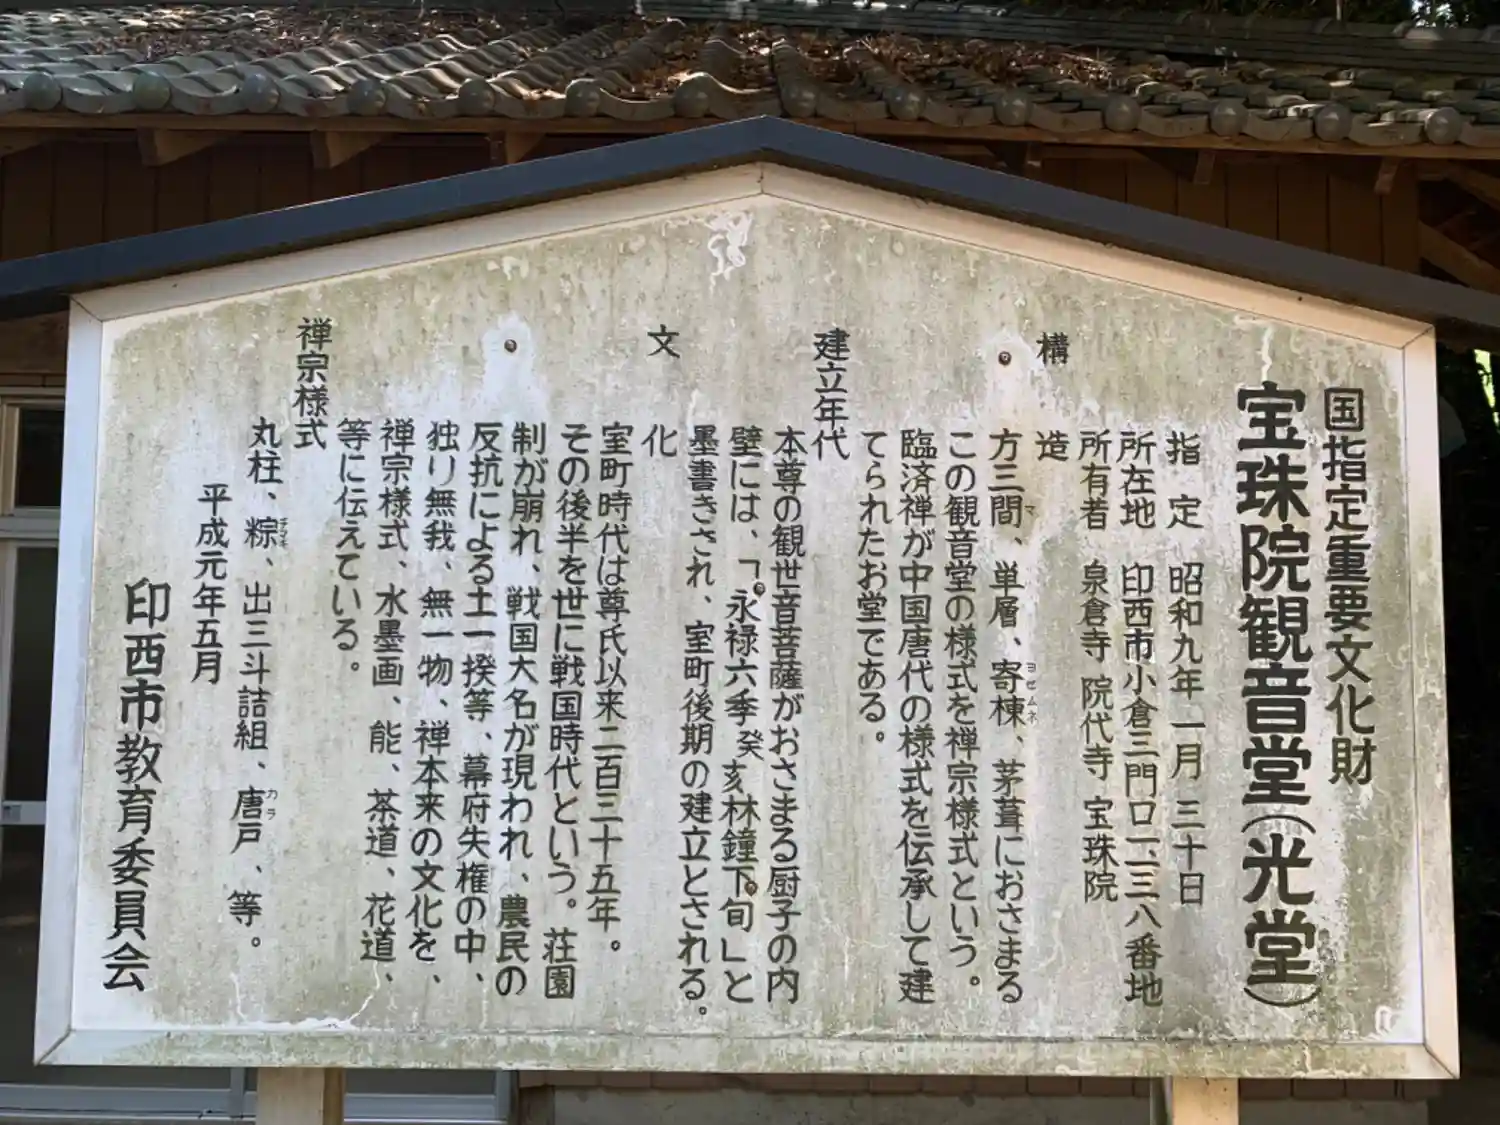 国指定重要文化財
宝珠院観音堂(光堂)
指定 昭和九年一月三十日
所在地 印西市小倉三門口一、三八番地
所有者 泉倉寺 院代寺 宝珠院
構造
方三間、単層、寄棟、茅葺におさまる
マ
ヨセムネ
この観音堂の様式を禅宗様式という。
臨済禅が中国唐代の様式を伝承して建
てられたお堂である。
建立年代
本尊の観世音菩薩がおさまる厨子の内
壁には、「永禄六季癸亥林鐘下旬」と
墨書きされ、室町後期の建立とされる。
文化
室町時代は尊氏以来二百三十五年。
その後半を世に戦国時代という。荘園
制が崩れ、戦国大名が現われ、農民の
反抗による土一揆等、幕府失権の中、
独り無我、無一物、禅本来の文化を、
禅宗様式、水墨画、能、茶道、花道、
等に伝えている。
禅宗様式
丸柱、粽、出三斗詰組、唐戸、等。
チマキ
カラ
平成元年五月
印西市教育委員会